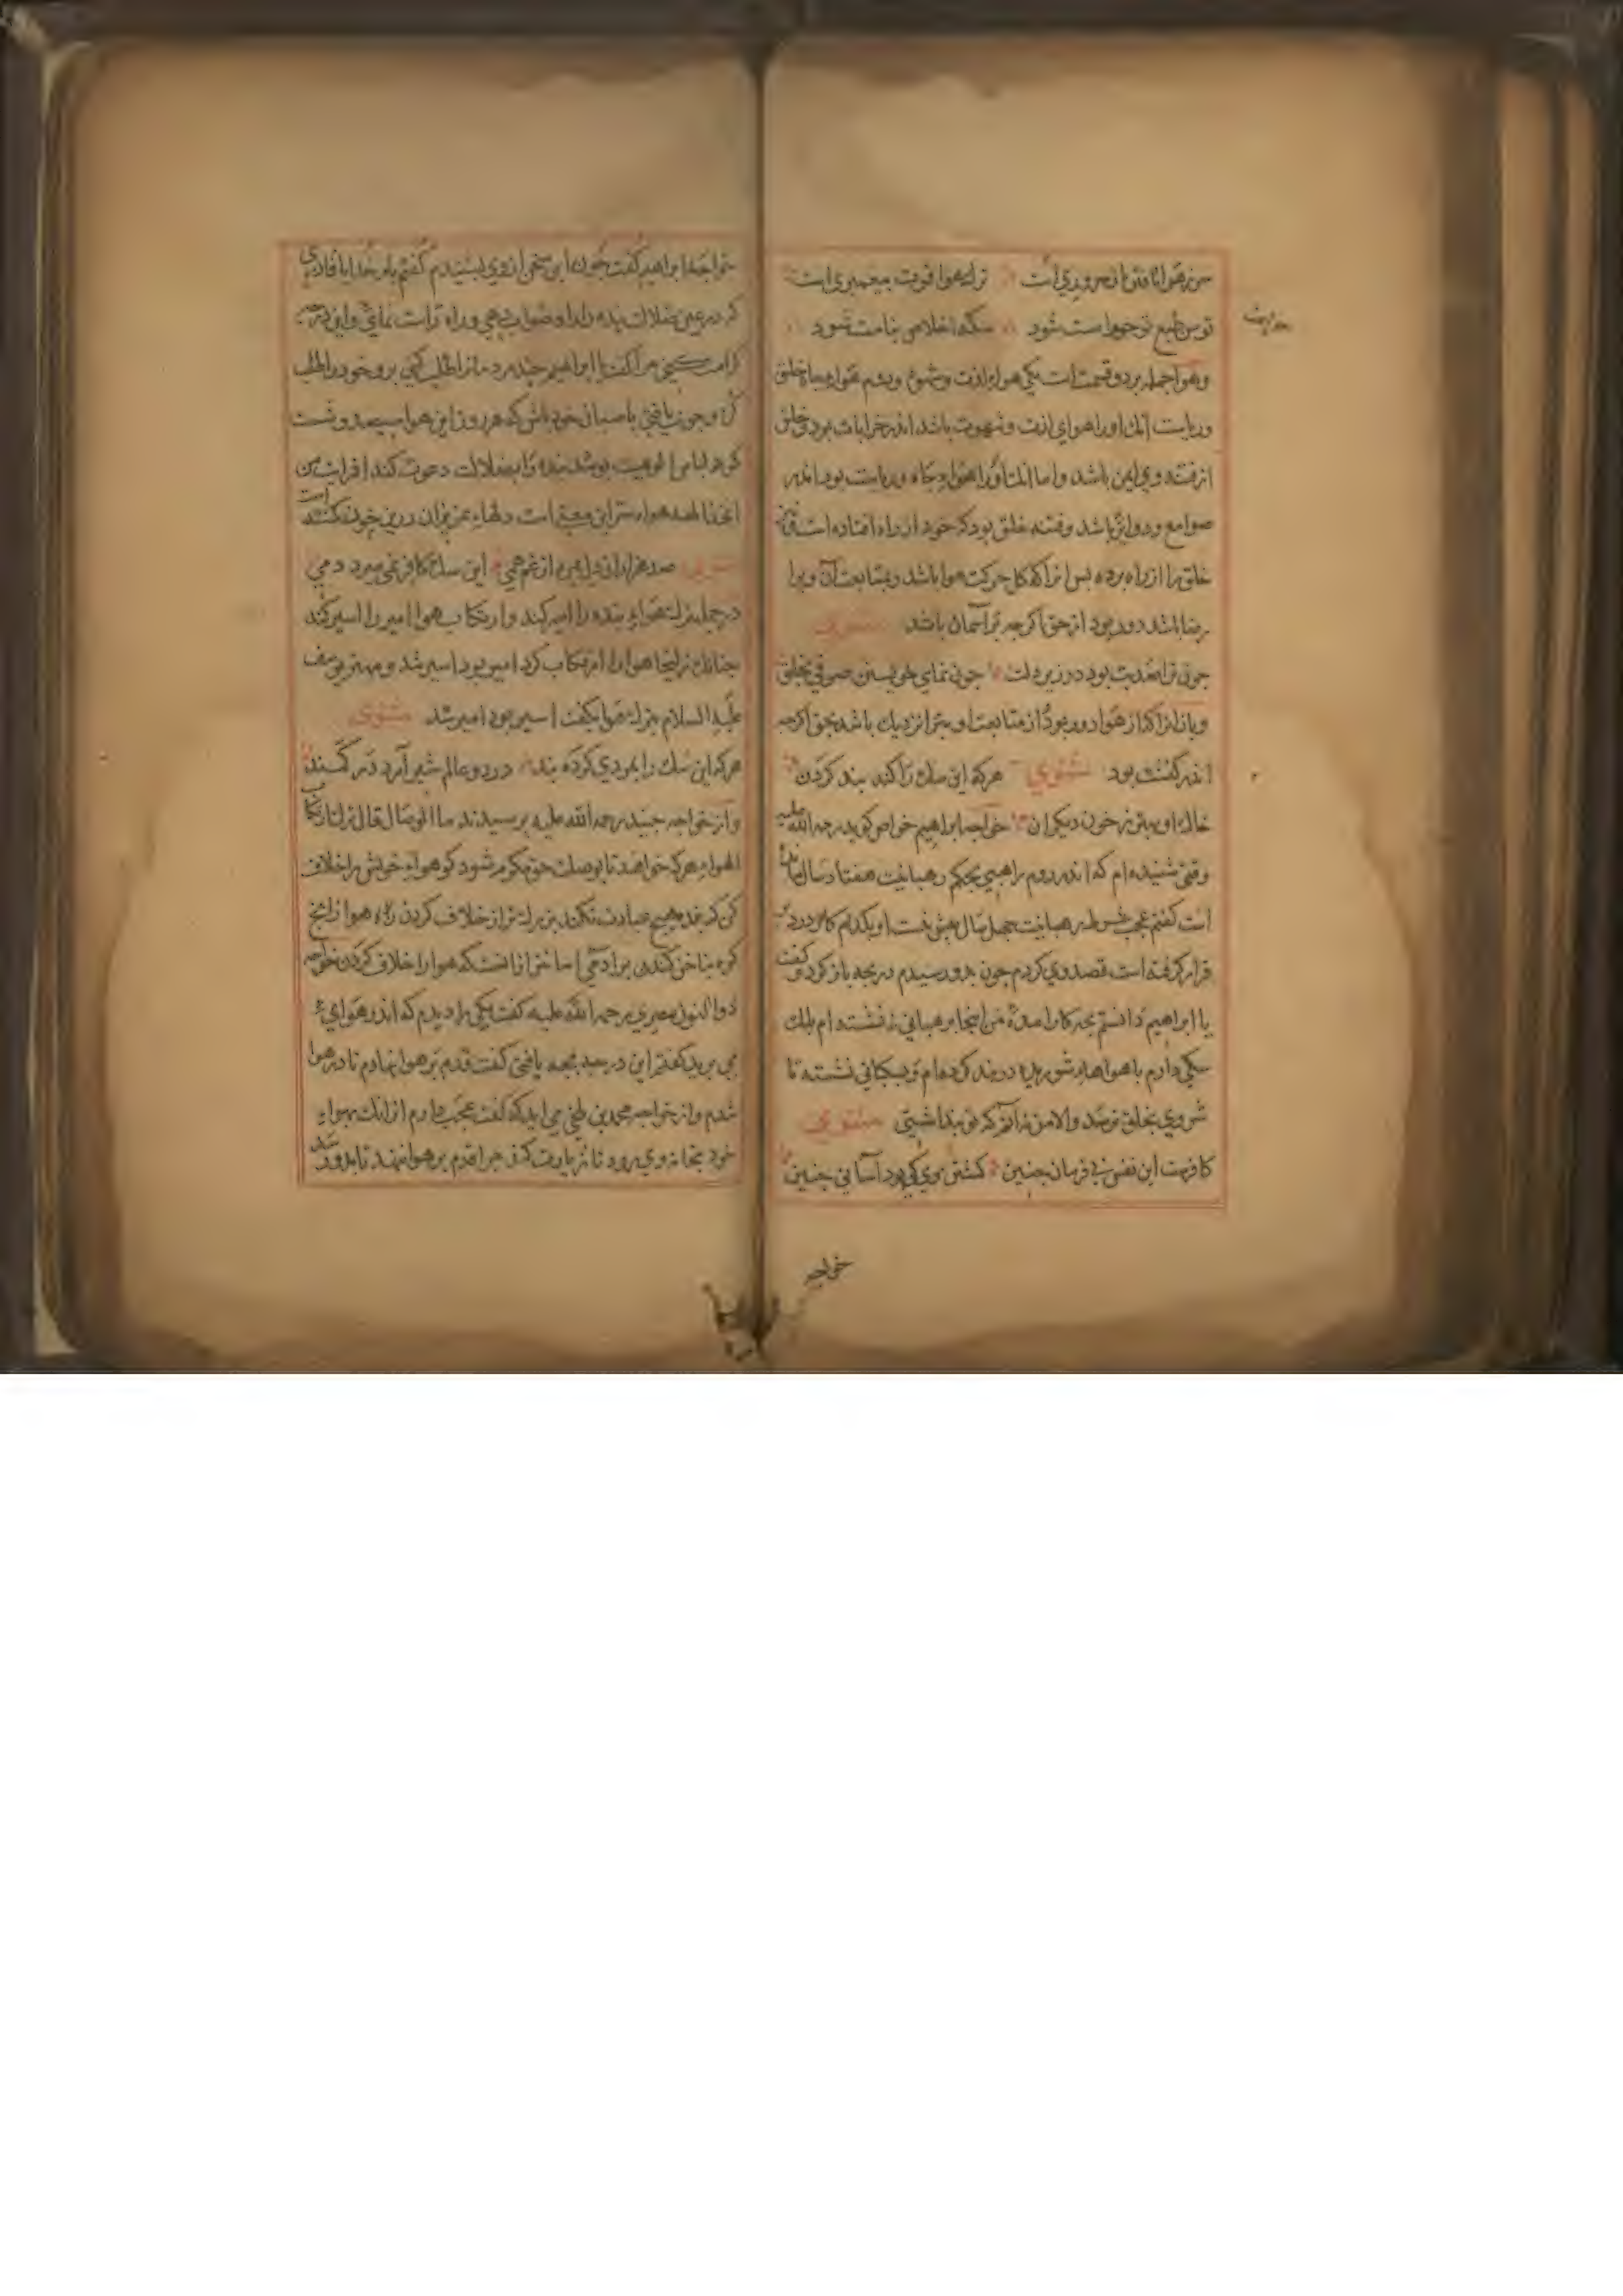 سر هوا تافتن از سروري است ترك هوا قوت پيغمبري است
توسن طبع تو چو رامت شود سكه اخلاص بنامت شود
وهوا جمله بر دو قسمت است يكي هواء لذت و شهوت ودوم هواء جاه خلق
ورياست آنك او را هواي لذت و شهوت باشد اندر خرابات بود و خلق
از فتنه وي ايمن باشد واما انك او را هواء جاه ورياست بود اندر
صوامع و دواير باشد وفتنه خلق بود كه خود از راه افتاده است
خلق را از راه برده پس انراكه كل حركت هوا باشد وبمتابعت آن ويرا
رضا باشد دور بود از حق اكرچه بر آسمان باشد مثنوي
چون ترا صد بت بود در زير دلق چون نماي خويشتن صوفي بخلق
وباز انراكه از هوا دور بود از متابعت او بري نزديك باشد بحق اكرچه
اندر كنشت بود مثنوي هركه اين سك را كند بند كردن
خاك او بهتر ز خون ديكران خواجه ابراهيم خواص كويد رحمه الله عليه
وقتي شنيده ام كه اندر روم راهبي بحكم رهبانيت هفتاد سال
است كفتم عجب شرط رهبانيت چهل سال بيش نيست او بكدام كار در
قرار كرفته است قصد وي كردم چون بدو رسيدم دريچه باز كرد و كفت
يا ابراهيم دانستم بچه كار امدهٔ من اينجا برهباني نه نشسته ام بلك
سكي دارم با هواهاء شوريده در بند كرده ام و بسكباني نشسته تا
شر وي بخلق نرسد والا من نه آنم كه تو پنداشتي مثنوي
كافرست اين نفس نافرمان چنين كشتن وي كي بود آسان چنين
خواجه
خواجه ابراهيم كفت چون اين سخن از وي بشنيدم كفتم بار خدايا قادري
كه در عين ضلالت بنده را راه صواب دهي وراه راست نمائي واين درجه
كرامت كني مرا كفت يا ابراهيم چند مردمانرا طلب كني برو خود را طلب
كن وچون يافتي پاسبان خود باش كه هر روز اين هوا سيصد و شصت
كونه لباس الوهيت بپوشد بنده را بضلالت دعوت كند افرايت من
اتخذ الهه هواه سر اين معني است دلهاء عزيزان درين خون كند
مثنوي صد هزاران دل بمرد از غم همي اين سك كافر نمي ميرد دمي
در جمله ترك هواء بنده را امير كند وارتكاب هوا امير را اسير كند
چنانك زليخا هوا را ارتكاب كرد امير بود اسير شد ومهتر يوسف
عليه السلام بترك هوا بكفت اسير بود امير شد مثنوي
هركه اين سك را بمردي كرد بند در دو عالم شير آرد در كمند
واز خواجه جنيد رحمه الله عليه پرسيدند ما الوصال قال ترك ارتكاب
الهواء هركه خواهد تا بوصلت حق مكرم شود كو هواء خويش را خلاف
كن كه بنده هيچ عبادت نكند بزركتر از خلاف كردن راه هوا زانچ
كوه بناخن كندن بر ادمي اسانتر از انست كه هوا را خلاف كردن خواجه
ذوالنون مصري رحمه الله عليه كفت يكي را ديدم كه اندر هواي
مي پريد كفتم اين درجه بچه يافتي كفت قدم بر هوا نهادم تا در هوا
شدم واز خواجه محمد بن بلخي مي ايد كه كفت عجب دارم از انك بهواء
خود بخانه وي رود تا زيارت كند چرا قدم بر هوا ننهد تا بدو رسد